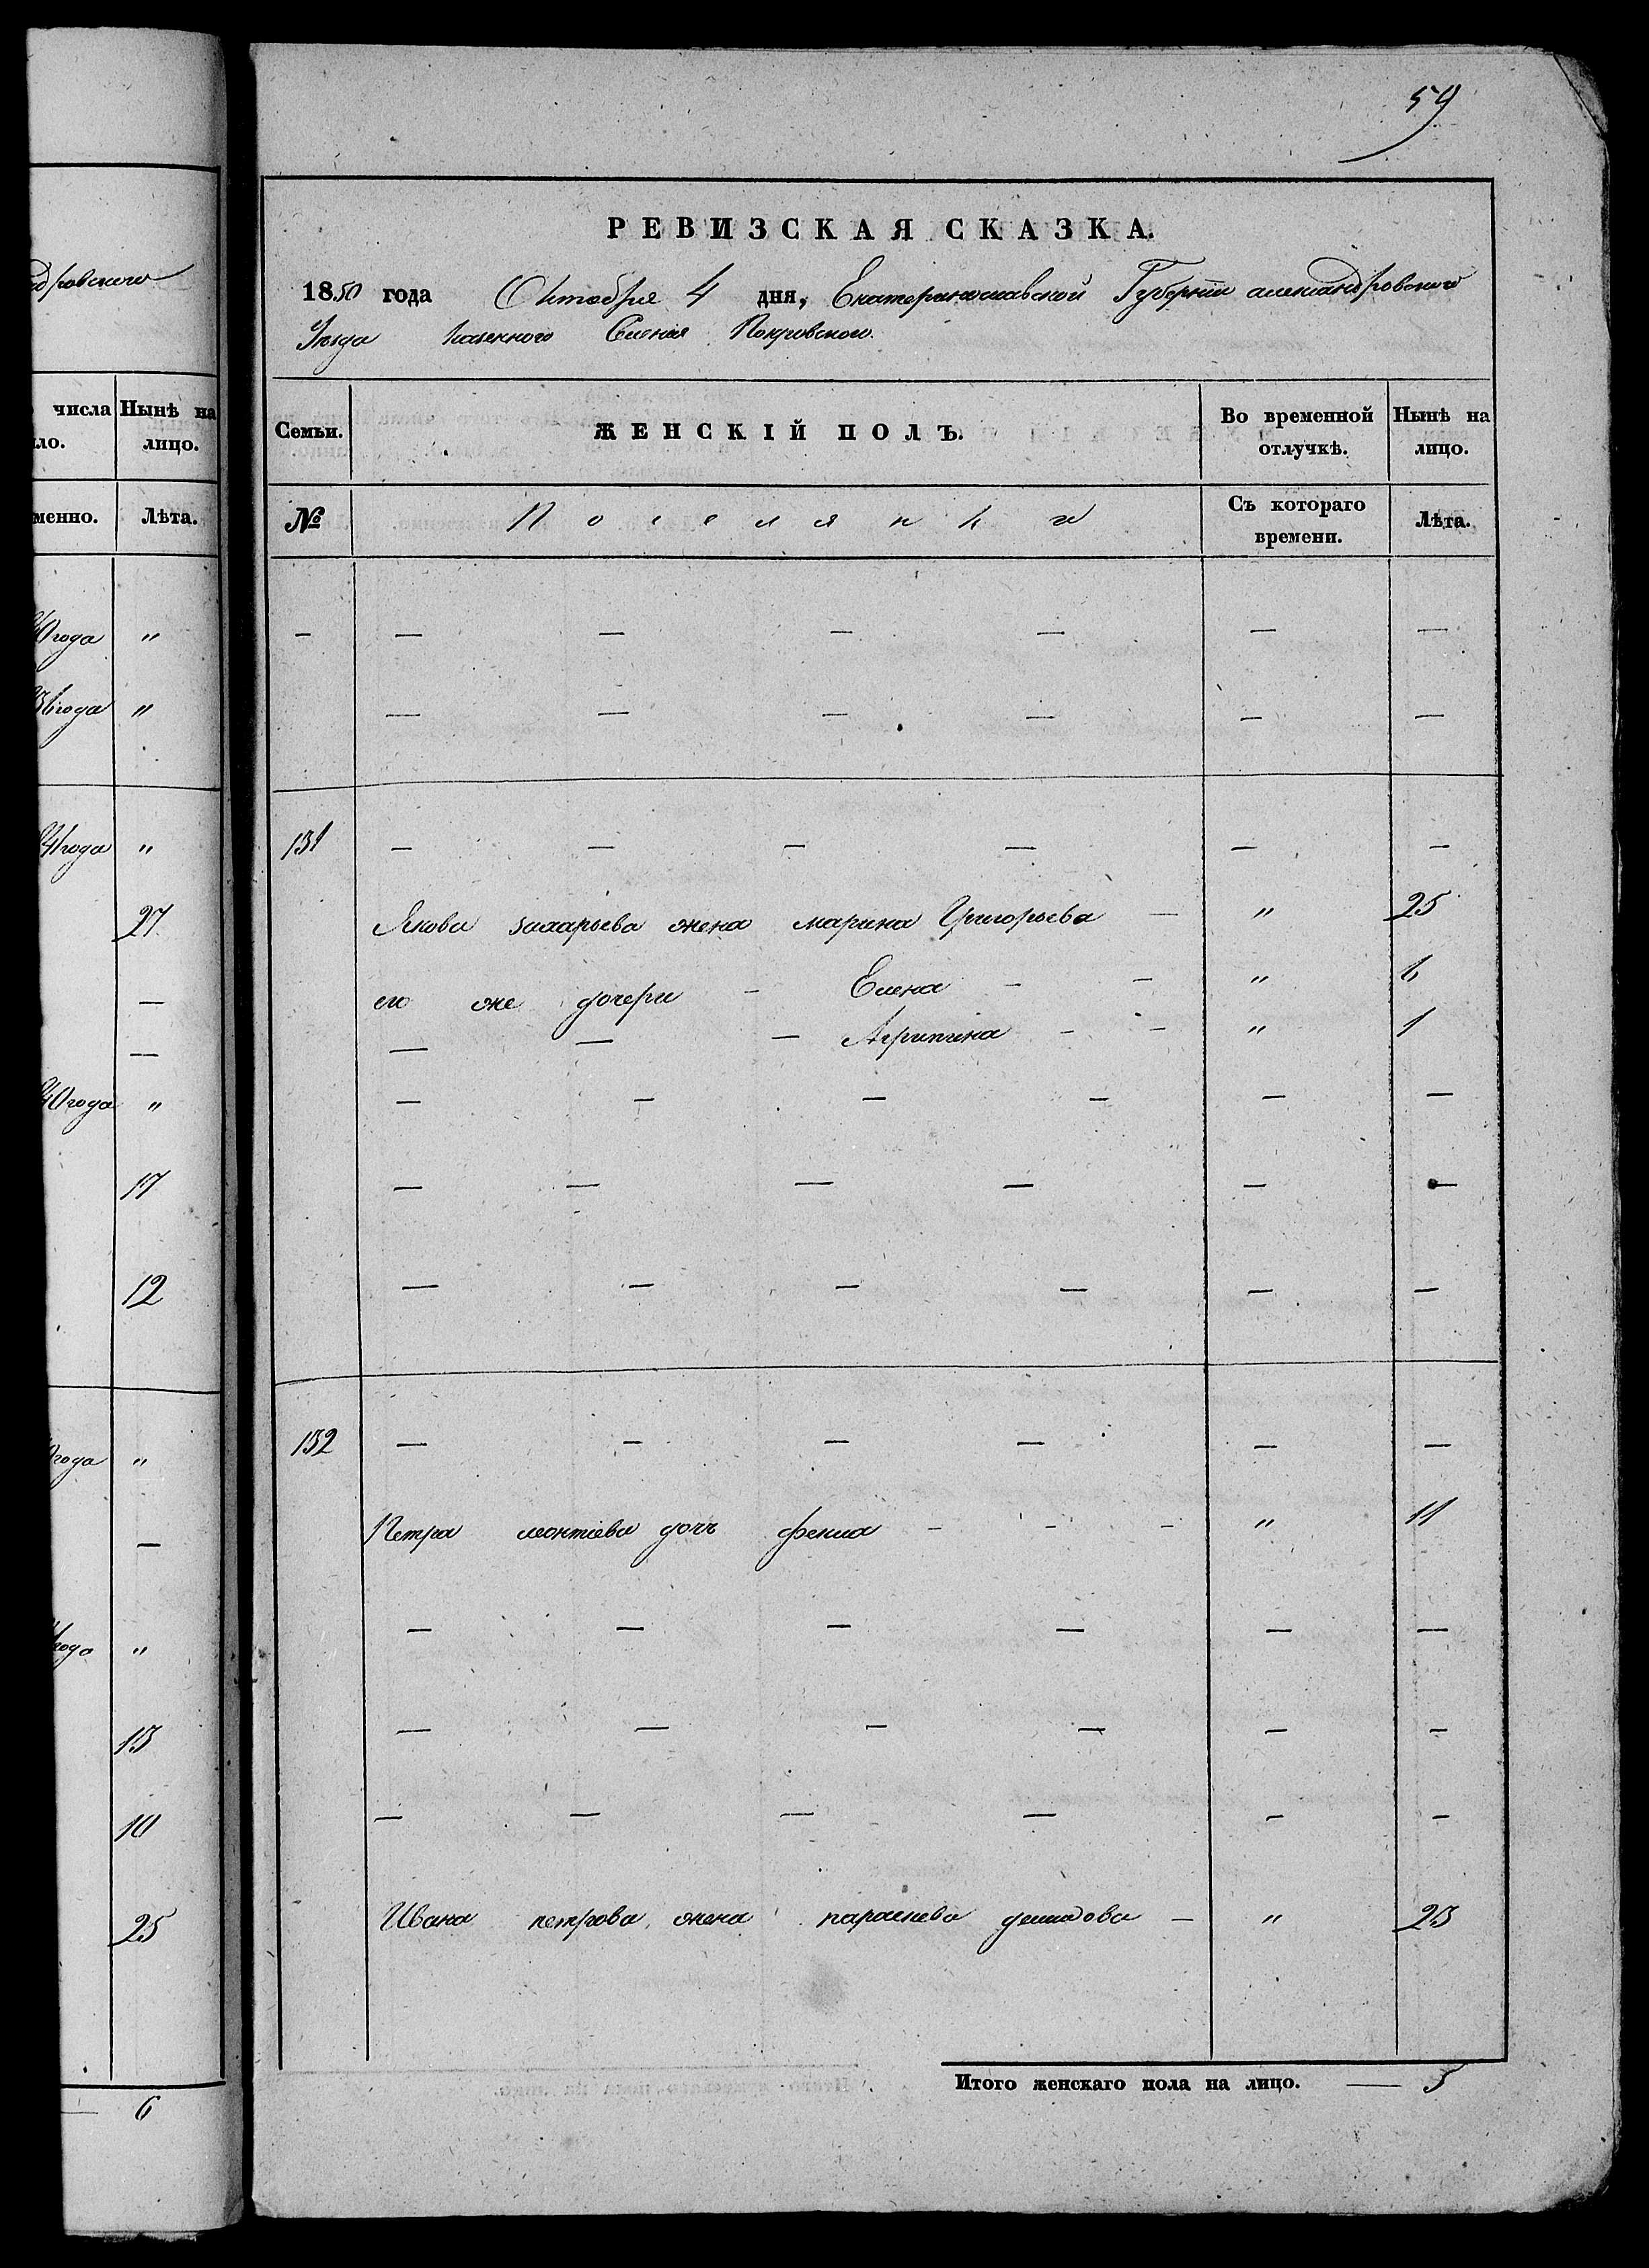 59
РЕВИЗСКАЯ СКАЗКА.
1850 года Октября 4 дня, Екатеринославской Губернии александровского
Уезда казенного Селения Покровского.
числа Нынѣ на лицо.
Семьи. ЖЕНСКІЙ ПОЛЪ. Во временной отлучкѣ. Нынѣ на лицо.
Лѣта.
№ Поселянки Съ котораго времени. Лѣта.
40 года "
36 года "
41 года "
131 — — — — — —
27
Якова захарьева жена марина Григорьева — " 25
его же дочери — Елена — — " 6
— — — Агрипина — — " 1
40 года "
— — — — — —
17
— — — — — —
12
— — — — — —
132 — — — — — —
года "
Петра леонтіева дочь фекла — — — " 11
— — — — — —
года "
13
— — — — — —
10
— — — — — —
25
Ивана петрова жена параскева демидова — " 23
Итого женскаго пола на лицо. — 5
6